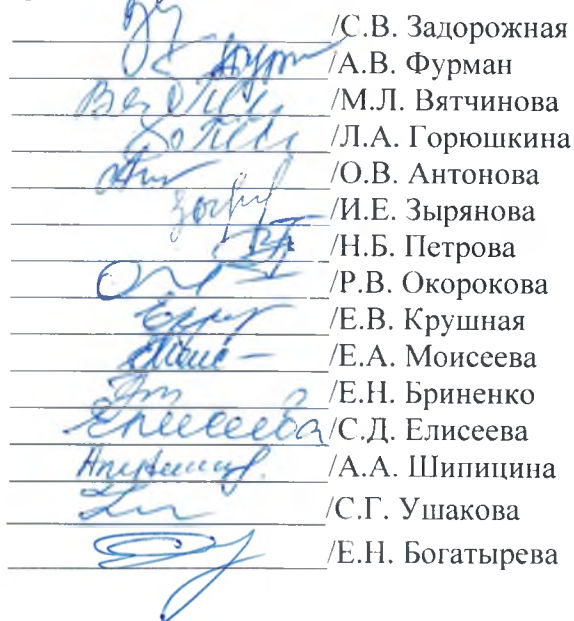 /С.В. Задорожная
/А.В. Фурман
/М.Л. Вятчинова
/Л.А. Горюшкина
/О.В. Антонова
/И.Е. Зырянова
/Н.Б. Петрова
/Р.В. Окорокова
/Е.В. Крушная
/Е.А. Моисеева
/Е.Н. Бриненко
Елисеева/С.Д. Елисеева
/А.А. Шипицина
/С.Г. Ушакова
/Е.Н. Богатырева